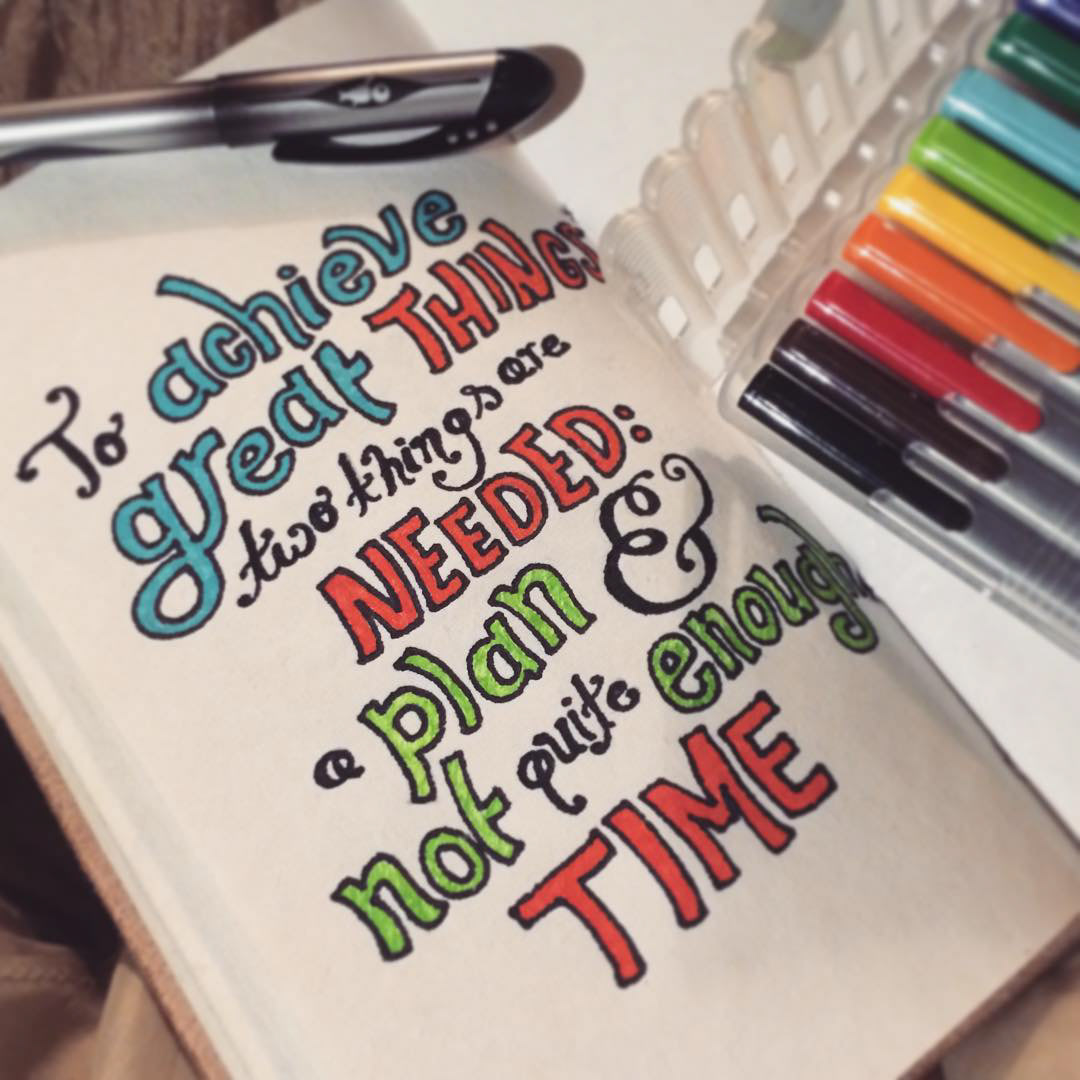 To achieve
great THINGS
two things are
NEEDED:
a plan &
not quite enough
TIME